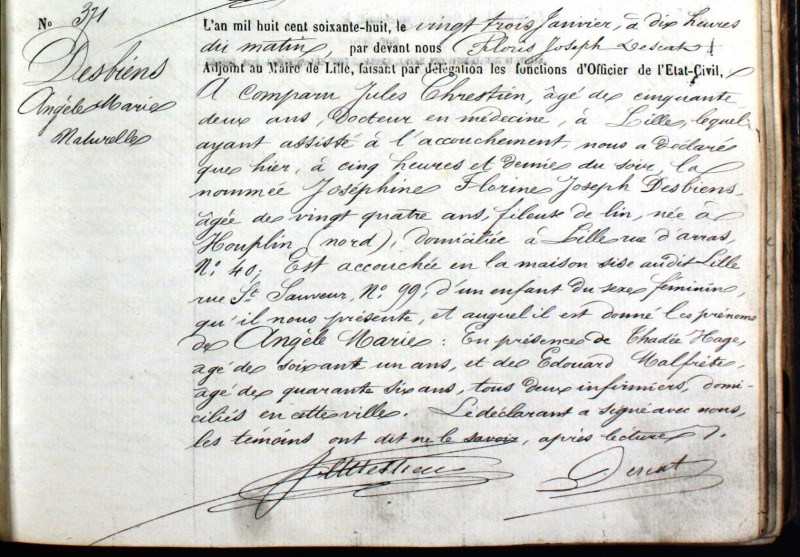 No 371
Desbiens
Angèle Marie
Naturelle
L'an mil huit cent soixante-huit, le vingt trois Janvier, à dix heures
du matin, par devant nous Floris Joseph Descat
Adjoint au Maire de Lille, faisant par délégation les fonctions d'Officier de l'Etat-Civil,
A comparu Jules Chrestien, âgé de cinquante
deux ans, Docteur en médecine, à Lille, lequel
ayant assisté à l'accouchement, nous a déclaré
que hier, à cinq heures et demie du soir, la
nommée Joséphine Florine Joseph Desbiens,
âgée de vingt quatre ans, fileuse de lin, née à
Houplin (nord), domiciliée à Lille rue d'arras,
No. 40; Est accouchée en la maison sise audit Lille
rue St. Sauveur, No. 99, d'un enfant du sexe féminin,
qu'il nous présente, et auquel il est donné les prénoms
de Angèle Marie: En présence de Thadée Hage,
agé de soixante un ans, et de Edouard Malfrète,
agé de quarante six ans, tous deux infirmiers, domi-
ciliés en cette ville. Le déclarant a signé avec nous,
les témoins ont dit ne le savoir, après lecture.
Chrestien
Descat